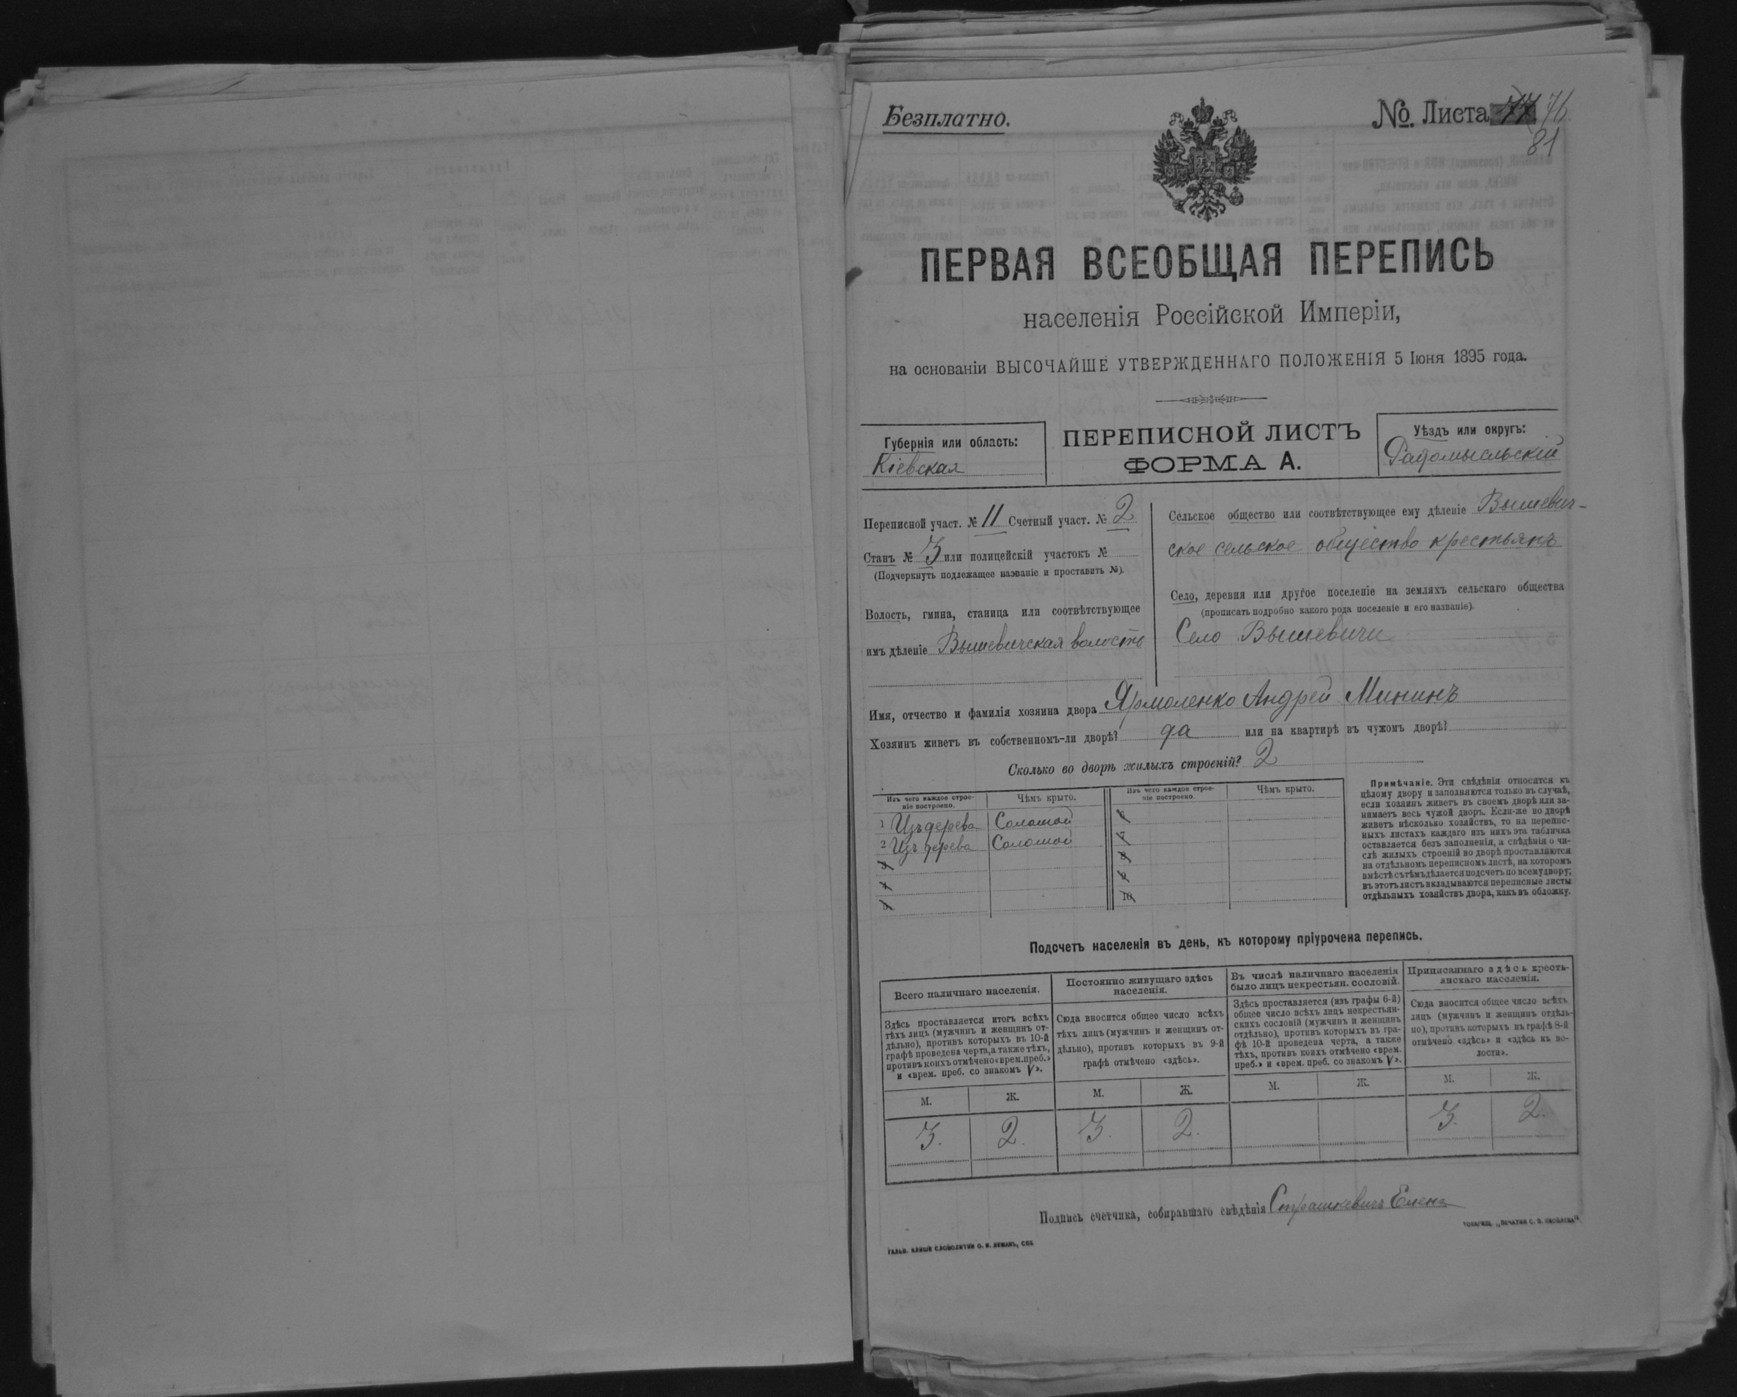 Безплатно.
№ Листа 76
81
ПЕРВАЯ ВСЕОБЩАЯ ПЕРЕПИСЬ
населенія Россійской Имперіи,
на основаніи ВЫСОЧАЙШЕ УТВЕРЖДЕННАГО ПОЛОЖЕНІЯ 5 Іюня 1895 года.
Губернія или область:
Кіевская
ПЕРЕПИСНОЙ ЛИСТЪ
ФОРМА А.
Уѣздъ или округъ:
Радомысльскій
Переписной участ. № 11 Счетный участ. № 2
Станъ № 3 или полицейскій участокъ №
(Подчеркнуть подлежащее названіе и проставить №).
Волость, гмина, станица или соотвѣтствующее
имъ дѣленіе Вышевичская волость
Сельское общество или соотвѣтствующее ему дѣленіе Вышевич-
ское сельское общество крестьянъ
Село, деревня или другое поселеніе на земляхъ сельскаго общества
(прописать подробно какого рода поселеніе и его названіе).
Село Вышевичи
Имя, отчество и фамилія хозяина двора Ярмоленко Андрей Мининъ
Хозяинъ живетъ въ собственномъ-ли дворѣ? да или на квартирѣ въ чужомъ дворѣ?
Сколько во дворѣ жилыхъ строеній? 2
Изъ чего каждое строе-
ніе построено.
Чѣмъ крыто.
Изъ чего каждое строе-
ніе построено.
Чѣмъ крыто.
1 Изъ дерева Соломой
2 Изъ дерева Соломой
Примѣчаніе. Эти свѣдѣнія относятся къ
цѣлому двору и заполняются только въ случаѣ,
если хозяинъ живетъ въ своемъ дворѣ или за-
нимаетъ весь чужой дворъ. Если-же во дворѣ
живетъ нѣсколько хозяйствъ, то на перепис-
ныхъ листахъ каждаго изъ нихъ эта табличка
оставляется безъ заполненія, а свѣдѣнія о чи-
слѣ жилыхъ строеній во дворѣ проставляются
на отдѣльномъ переписномъ листѣ, на которомъ
вмѣстѣ съ тѣмъ дѣлается подсчетъ по всему двору;
въ этотъ листъ вкладываются переписные листы
отдѣльныхъ хозяйствъ двора, какъ въ обложку.
Подсчетъ населенія въ день, къ которому пріурочена перепись.
Всего наличнаго населенія.
Здѣсь проставляется итогъ всѣхъ
тѣхъ лицъ (мужчинъ и женщинъ от-
дѣльно), противъ которыхъ въ 10-й
графѣ проведена черта, а также тѣхъ,
противъ коихъ отмѣчено «врем. преб.»
и «врем. преб. со знакомъ V».
Постоянно живущаго здѣсь
населенія.
Сюда вносится общее число всѣхъ
тѣхъ лицъ (мужчинъ и женщинъ от-
дѣльно), противъ которыхъ въ 9-й
графѣ отмѣчено «здѣсь».
Въ числѣ наличнаго населенія
было лицъ некрестьян. сословій.
Здѣсь проставляется (изъ графы 6-й)
общее число всѣхъ лицъ некрестьян-
скихъ сословій (мужчинъ и женщинъ
отдѣльно), противъ которыхъ въ гра-
фѣ 10-й проведена черта, а также
тѣхъ, противъ коихъ отмѣчено «врем.
преб.» и «врем. преб. со знакомъ V».
Приписаннаго здѣсь кресть-
янскаго населенія.
Сюда вносится общее число всѣхъ
лицъ (мужчинъ и женщинъ отдѣль-
но), противъ которыхъ въ графѣ 8-й
отмѣчено «здѣсь» и «здѣсь въ во-
лости».
М. Ж. М. Ж. М. Ж. М. Ж.
3. 2. 3. 2. 3. 2.
Подпись счетчика, собиравшаго свѣдѣнія Страшкевич Елена
ГАЛЬВ. КЛИШЕ СЛОВОЛИТНИ О. И. ЛЕМАНЪ, СПБ.
ТОВАРИЩ. „ПЕЧАТНЯ С. П. ЯКОВЛЕВА".